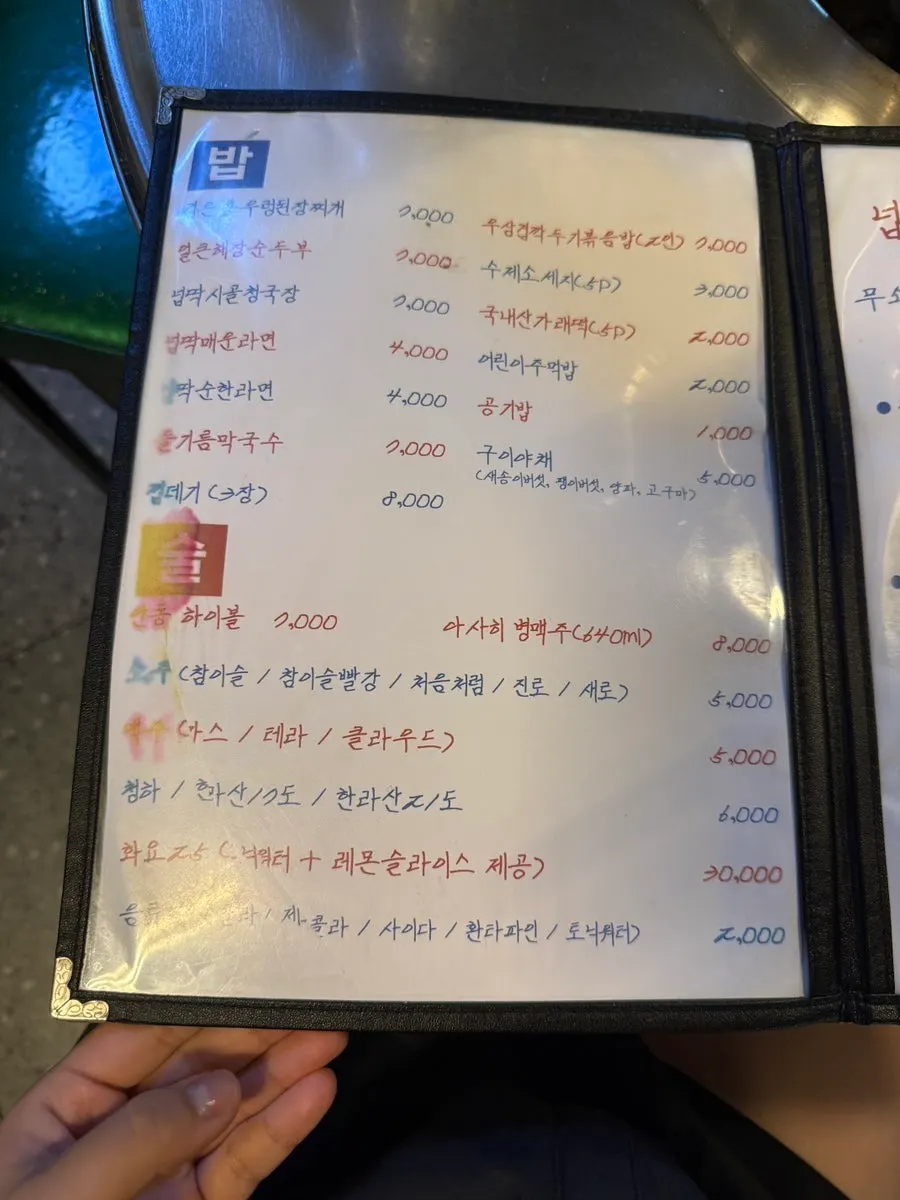 밥
우렁된장찌개 7,000
얼큰해장순두부 7,000
넙딱시골청국장 7,000
넙딱매운라면 4,000
딱순한라면 4,000
들기름막국수 7,000
껍데기 (3장) 8,000
우삼겹깍두기볶음밥(2인) 7,000
수제소세지(5P) 3,000
국내산가래떡(5P) 2,000
어린이주먹밥 2,000
공기밥 1,000
구이야채 5,000
(새송이버섯, 팽이버섯, 양파, 고구마)
술
하이볼 7,000
아사히 병맥주(640ml) 8,000
소주 (참이슬 / 참이슬빨강 / 처음처럼 / 진로 / 새로) 5,000
맥주 (카스 / 테라 / 클라우드) 5,000
청하 / 한라산17도 / 한라산21도 6,000
화요25 (토닉워터 + 레몬슬라이스 제공) 30,000
음료 / 제로콜라 / 사이다 / 환타파인 / 토닉워터) 2,000
넙
무